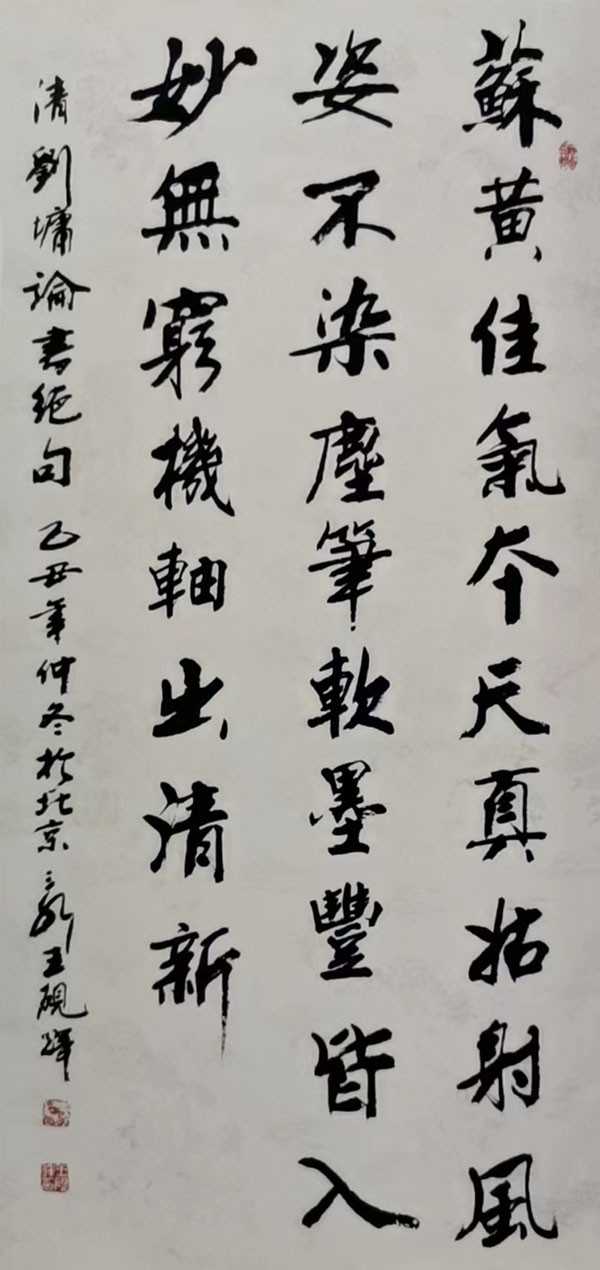 蘇黃佳氣本天真姑射風
姿不染塵筆軟墨豐皆入
妙無窮機軸出清新
清劉墉論書絕句 乙丑年仲冬於北京 王硯輝